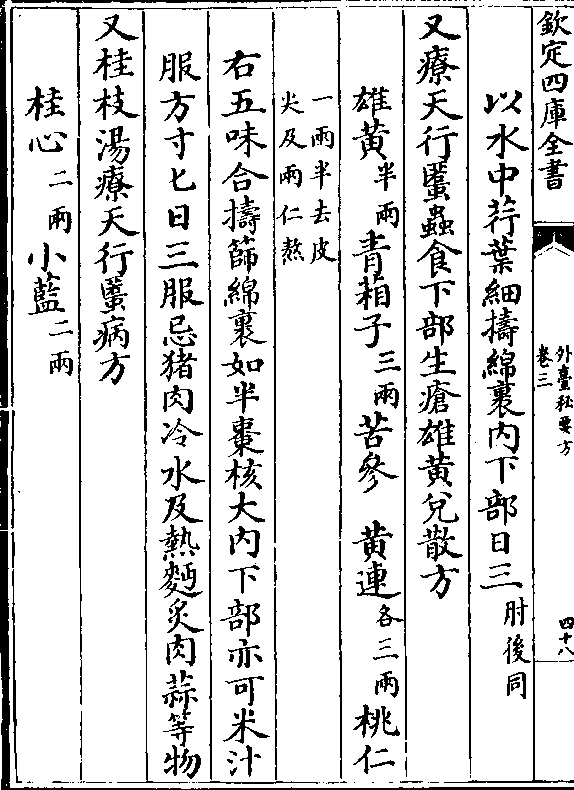 欽定四庫全書
外臺秘要方
卷三
四十八
以水中荇葉細擣綿裹内下部日三肘後同
又療天行䘌蟲食下部生瘡雄黄兌散方
雄黄半兩青葙子三兩苦參 黄連各三兩桃仁
一兩半去皮
尖及兩仁熬
右五味合擣篩綿裹如半棗核大内下部亦可米汁
服方寸匕日三服忌猪肉冷水及熱麫炙肉蒜等物
又桂枝湯療天行䘌病方
桂心二兩小藍二兩